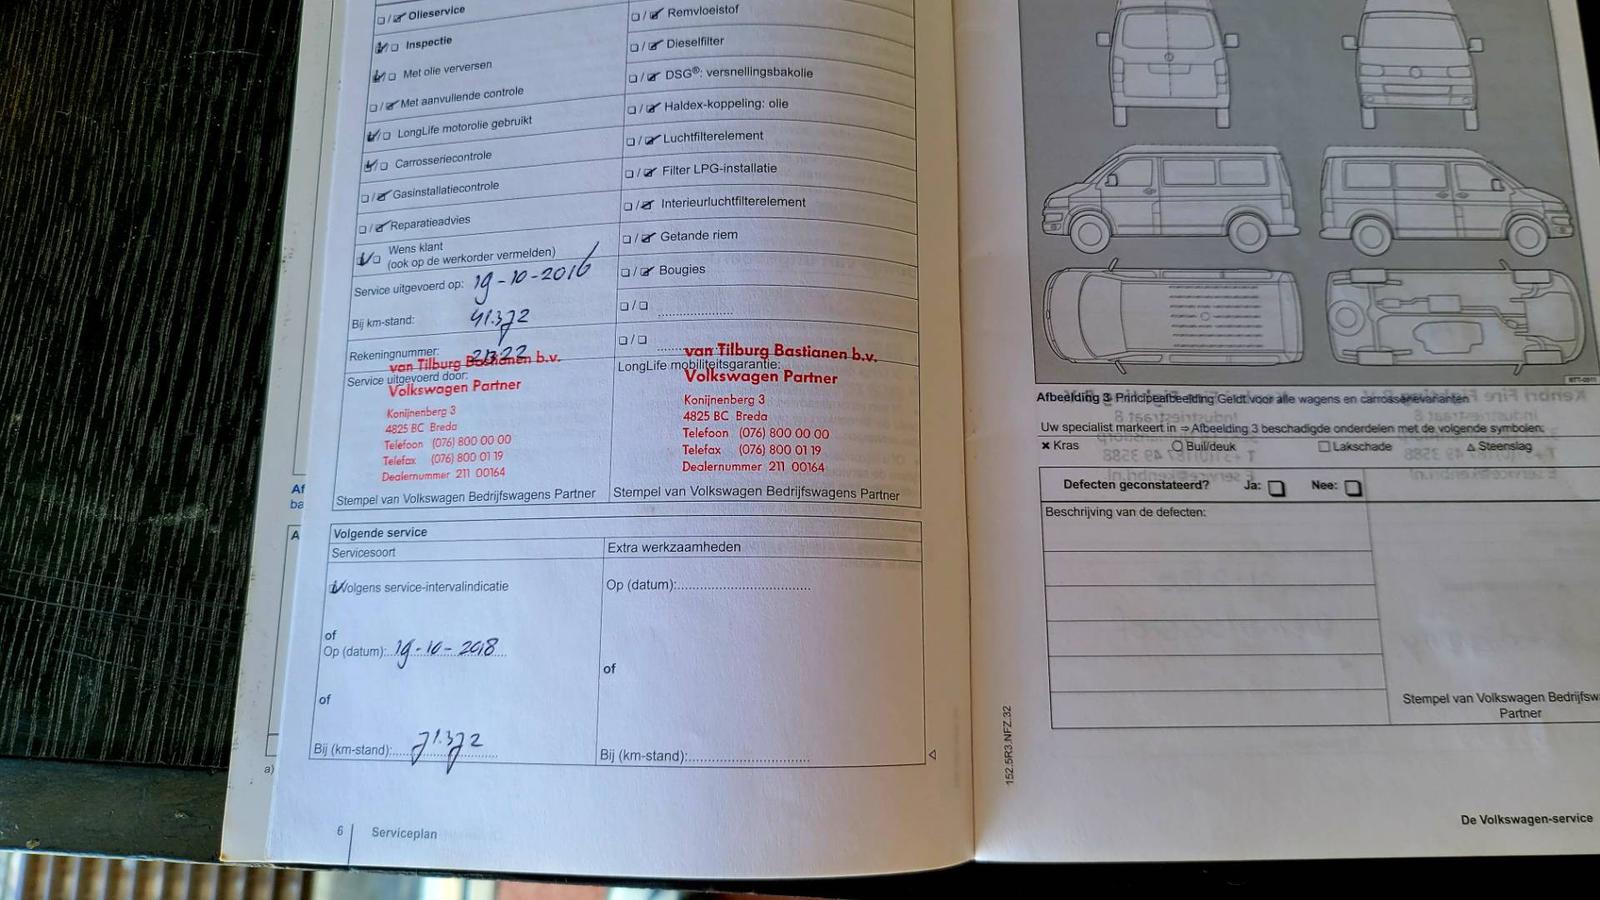 Olieservice
Inspectie
Met olie verversen
Met aanvullende controle
LongLife motorolie gebruikt
Carrosseriecontrole
Gasinstallatiecontrole
Reparatieadvies
Wens klant
(ook op de werkorder vermelden)
Service uitgevoerd op: 19-10-2016
Bij km-stand: 41.372
Rekeningnummer:
van Tilburg Bastianen b.v.
Service uitgevoerd door:
Volkswagen Partner
Konijnenberg 3
4825 BC Breda
Telefoon (076) 800 00 00
Telefax (076) 800 01 19
Dealernummer 211 00164
Stempel van Volkswagen Bedrijfswagens Partner
Remvloeistof
Dieselfilter
DSG®: versnellingsbakolie
Haldex-koppeling: olie
Luchtfilterelement
Filter LPG-installatie
Interieurluchtfilterelement
Getande riem
Bougies
van Tilburg Bastianen b.v.
LongLife mobiliteitsgarantie:
Volkswagen Partner
Konijnenberg 3
4825 BC Breda
Telefoon (076) 800 00 00
Telefax (076) 800 01 19
Dealernummer 211 00164
Stempel van Volkswagen Bedrijfswagens Partner
Volgende service
Servicesoort
Volgens service-intervalindicatie
of
Op (datum): 19-10-2018
of
Bij (km-stand): 71.372
Extra werkzaamheden
Op (datum):
of
Bij (km-stand):
6 Serviceplan
Afbeelding 3 Principeafbeelding Geldt voor alle wagens en carrosserievarianten
Uw specialist markeert in ⇒ Afbeelding 3 beschadigde onderdelen met de volgende symbolen:
Kras Buil/deuk Lakschade Steenslag
Defecten geconstateerd? Ja: Nee:
Beschrijving van de defecten:
Stempel van Volkswagen Bedrijfsw
Partner
152.5R3.NFZ.32
De Volkswagen-service